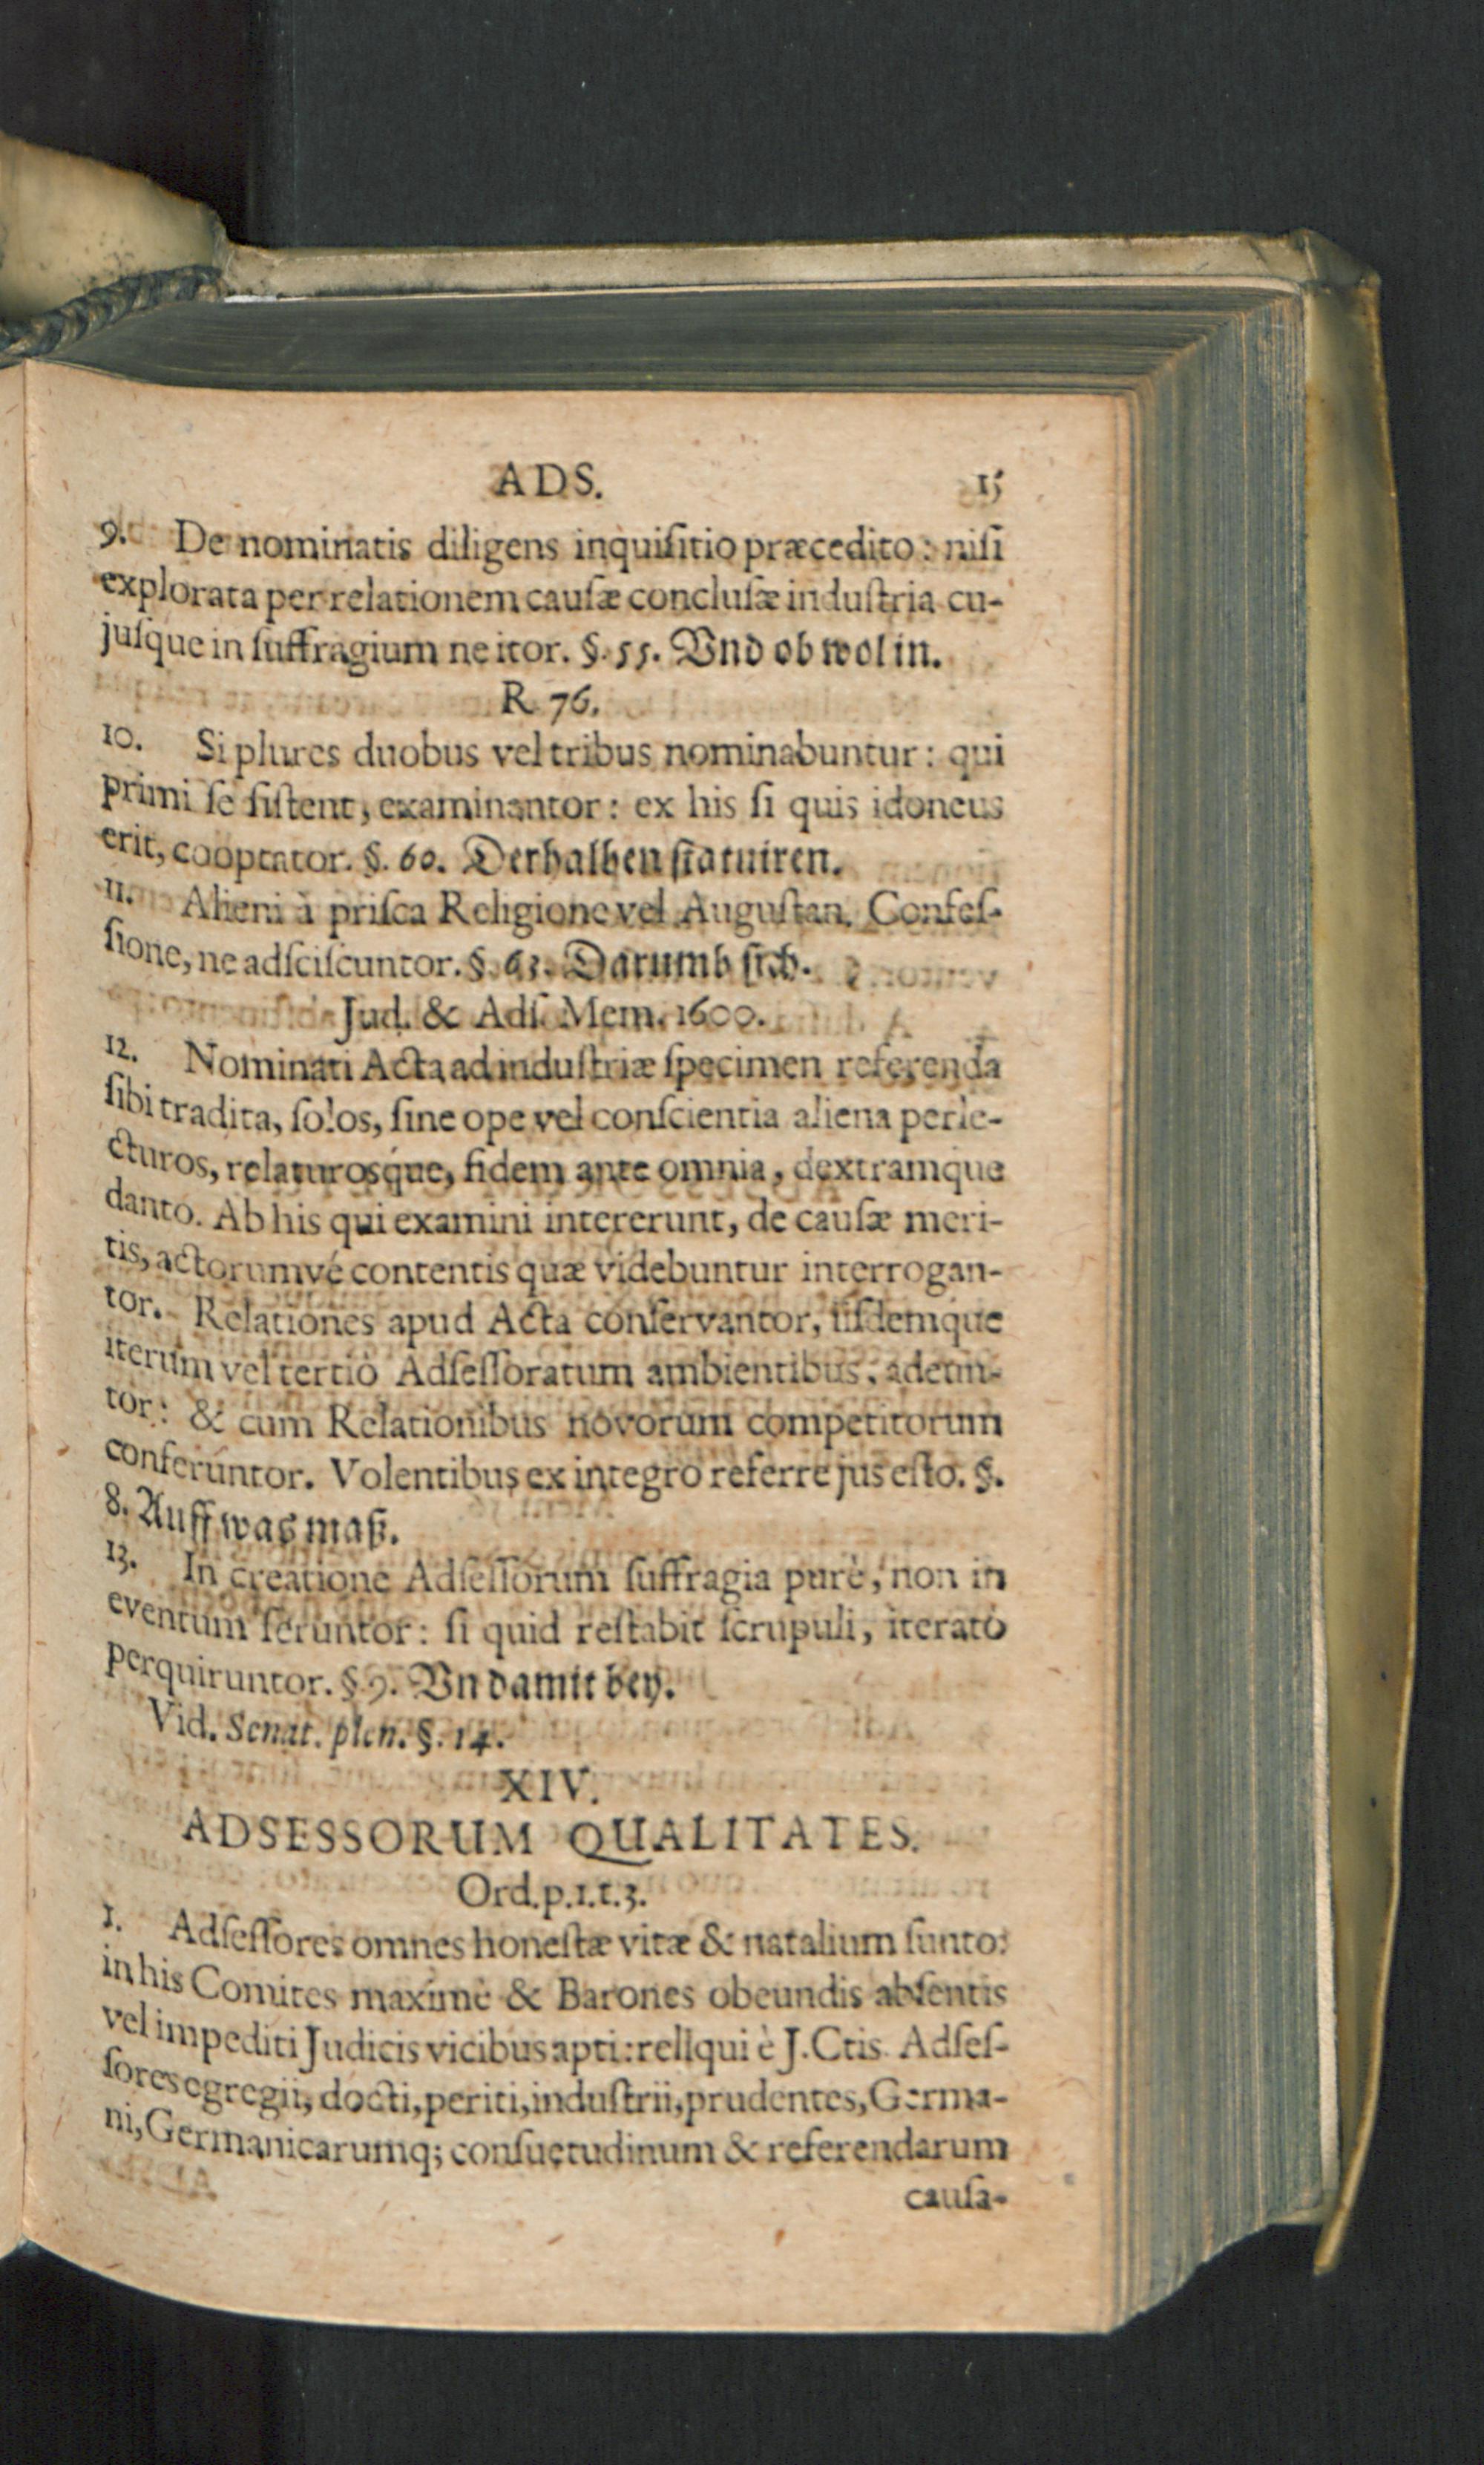 ADS. 15
9. De nominatis diligens inquiſitio præcedito: niſi
explorata per relationem cauſæ concluſæ induſtria cu-
juſque in ſuffragium ne itor. §. 55. Vnd ob wol in.
R. 76.
10. Si plures duobus vel tribus nominabuntur: qui
primi ſe ſiſtent, examinantor: ex his ſi quis idoneus
erit, cooptator. §. 60. Derhalben ſtatuiren.
11. Alieni à priſca Religione vel Auguſtan. Confeſ-
ſione, ne adſciſcuntor. §. 63. Darumb ſich.
Jud. & Adſ. Mem. 1600.
12. Nominati Acta ad induſtriæ ſpecimen referenda
ſibi tradita, ſolos, ſine ope vel conſcientia aliena perle-
cturos, relaturosq́ue, fidem ante omnia, dextramque
danto. Ab his qui examini intererunt, de cauſæ meri-
tis, actorumvé contentis quæ videbuntur interrogan-
tor. Relationes apud Acta conſervantor, iiſdemque
iterùm vel tertiò Adſeſſoratum ambientibus, adeun-
tor: & cum Relationibus novorum competitorum
conferuntor. Volentibus ex integro referre jus eſto. §.
8. Auff was maß.
13. In creatione Adſeſſorum ſuffragia purè, non in
eventum feruntor: ſi quid reſtabit ſcrupuli, iteratò
perquiruntor. §. 9. Vn damit bey.
Vid. Senat. plen. §. 14.
XIV.
ADSESSORUM QUALITATES.
Ord. p. 1. t. 3.
1. Adſeſſores omnes honeſtæ vitæ & natalium ſunto:
in his Comites maximè & Barones obeundis abſentis
vel impediti Judicis vicibus apti: reliqui è J. Ctis Adſeſ-
ſores egregii, docti, periti, induſtrii, prudentes, Germa-
ni, Germanicarumq; conſuetudinum & referendarum
cauſa-